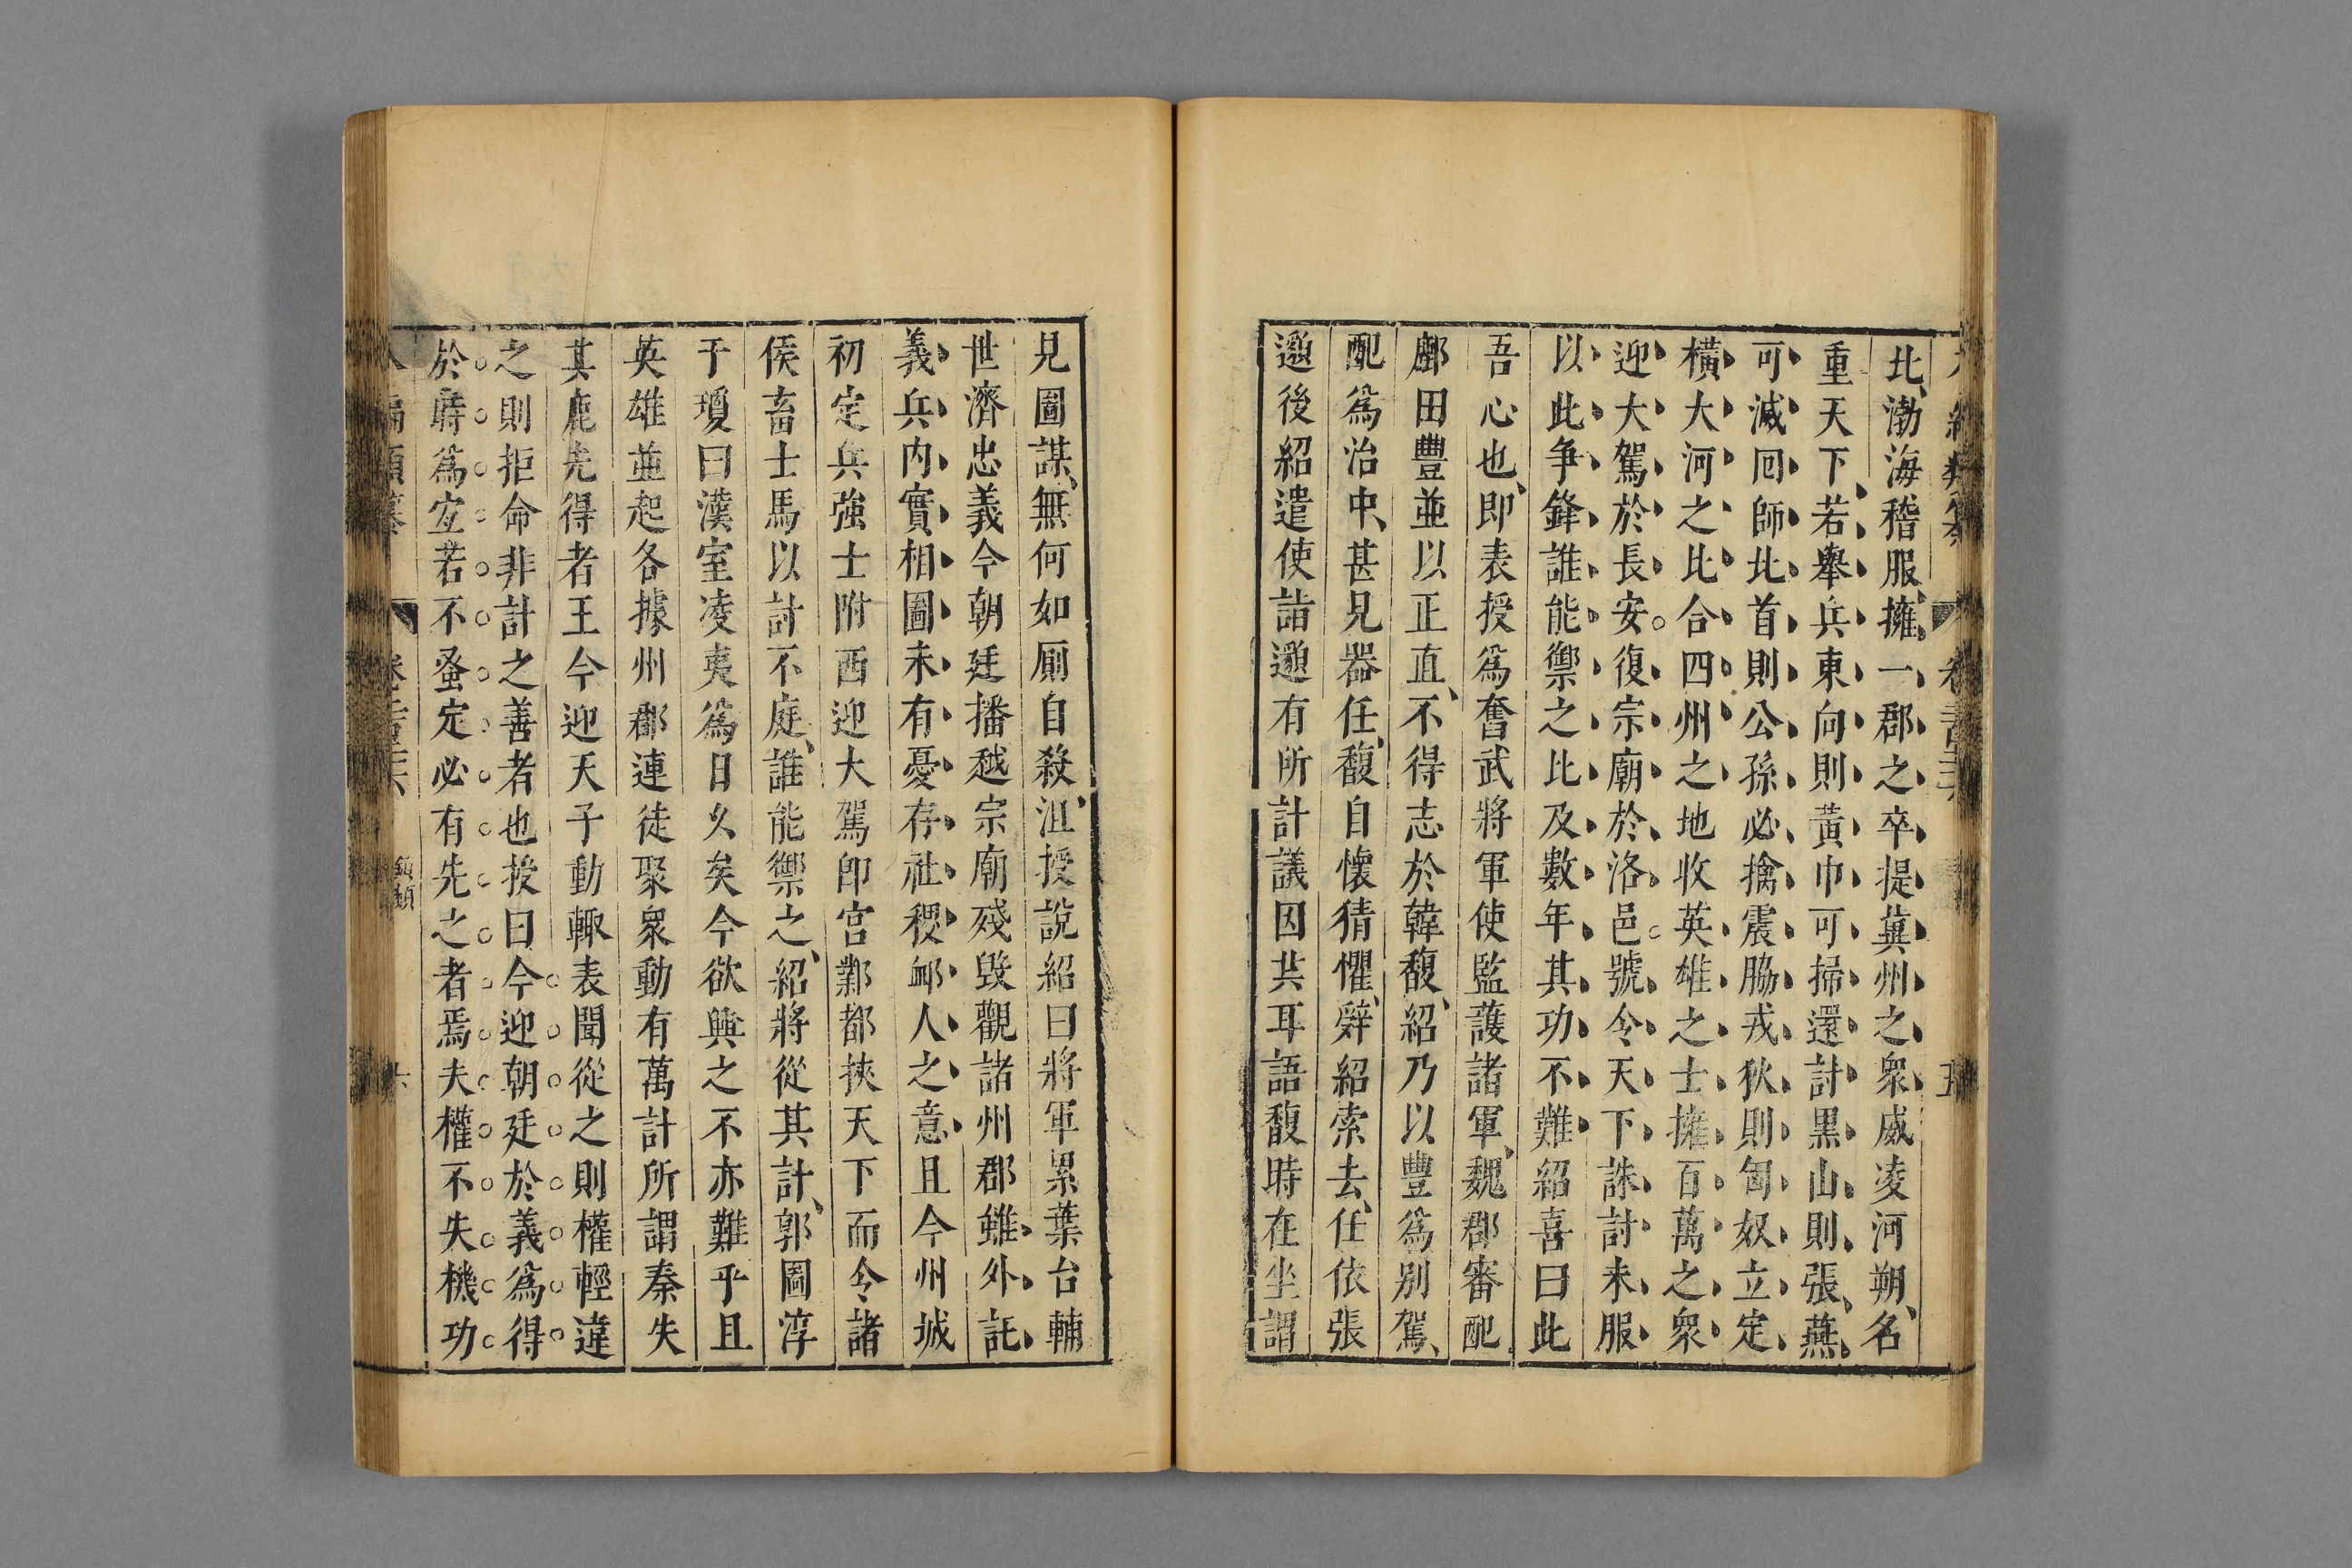 北、渤海稽服、擁一郡之卒提兾州之衆威凌河朔、名
重天下、若舉兵東向則黃巾可掃還討黒山則張燕
可滅囘師北首則公孫必擒震脇戎狄則匈奴立定
橫大河之北合四州之地收英雄之士擁百萬之衆
迎大駕於長安復宗廟於洛邑號令天下誅討未服
以此争鋒誰能禦之比及數年其功不難紹喜曰此
吾心也、即表授爲奮武將軍使監護諸軍、魏郡審配
鄽田豐並以正直、不得志於韓馥、紹乃以豐爲別駕、
配爲治中、甚見器任、馥自懷猜懼、辭紹索去、任依張
邈後紹遣使詣邈有所計議因共耳語馥時在坐謂
見圖謀、無何如厠自殺、沮授說紹曰將軍累葉台輔
世濟忠義今朝廷播越宗廟殘毀觀諸州郡雖外託
義兵内實相圖未有憂存社稷䘏人之意且今州城
初定兵強士附西迎大駕卽宮鄴都挾天下而令諸
侯畜士馬以討不庭、誰能禦之、紹將從其計、郭圖淳
于瓊曰漢室凌夷爲日久矣今欲興之不亦難乎且
英雄並起各據州郡連徒聚衆動有萬計所謂秦失
其鹿先得者王今迎天子動輙表聞從之則權輕違
之則拒命非計之善者也授曰今迎朝廷於義爲得
於時爲宜若不蚤定必有先之者焉夫權不失機功